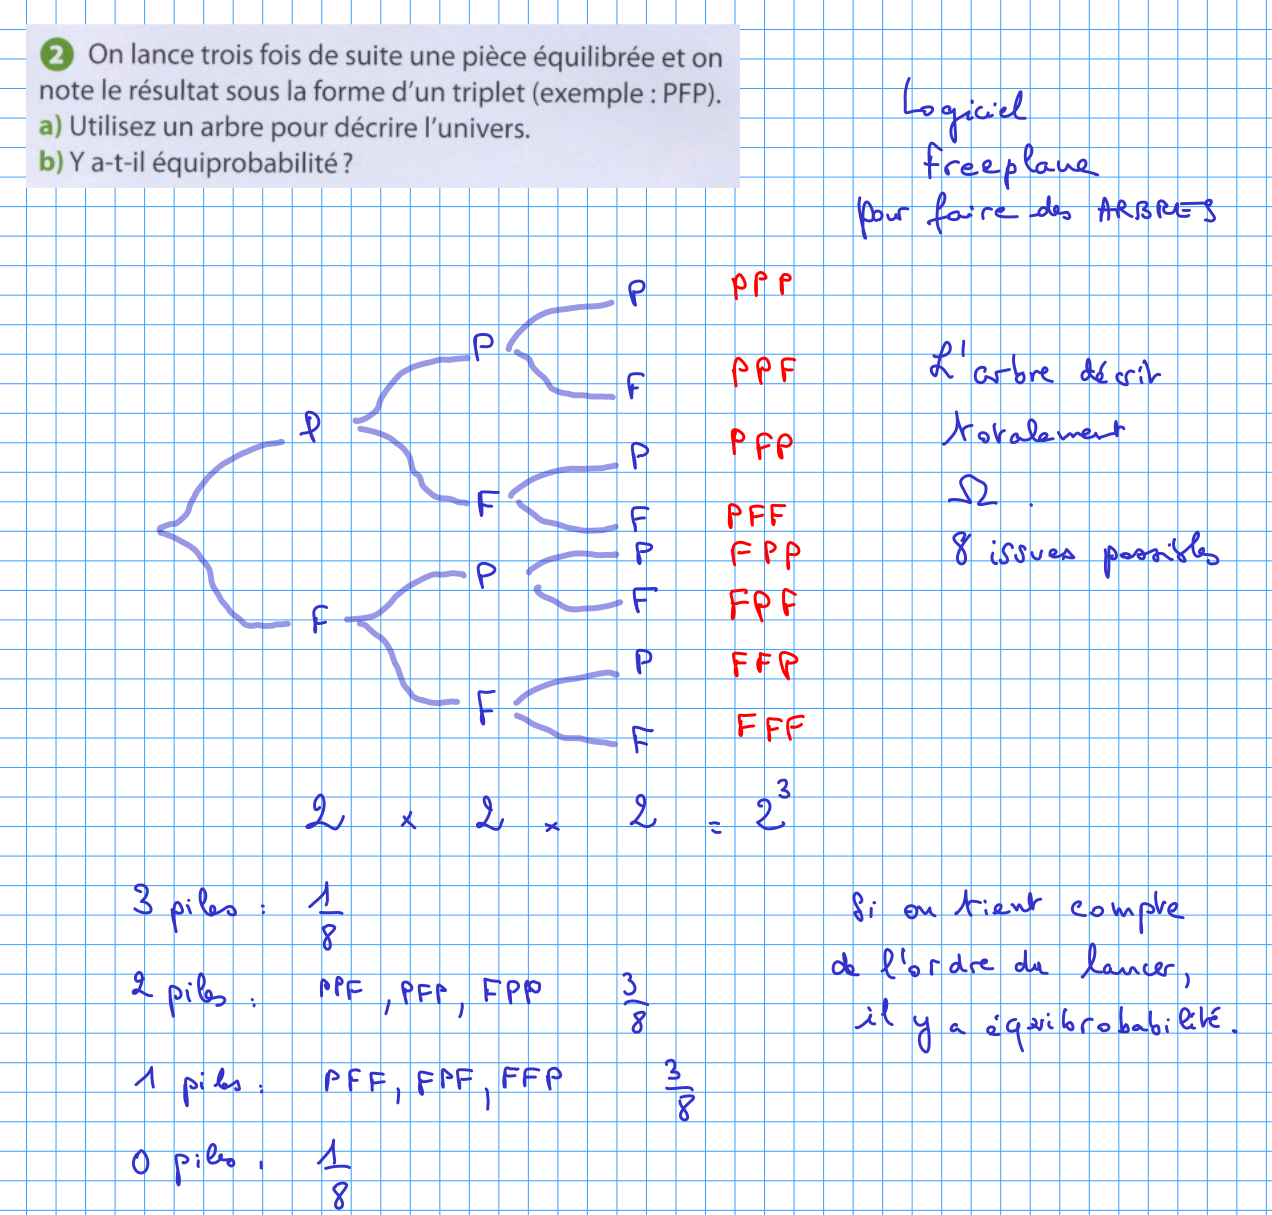 2 On lance trois fois de suite une pièce équilibrée et on
note le résultat sous la forme d'un triplet (exemple : PFP).
a) Utilisez un arbre pour décrire l'univers.
b) Y a-t-il équiprobabilité ?
Logiciel
freeplane
pour faire des ARBRES
P PPP
P
F PPF
P
P PFP
F
F PFF
P FPP
P
F FPF
F
P FFP
F
F FFF
L'arbre décrit
totalement
Ω.
8 issues possibles
2 × 2 × 2 = 2³
3 piles : 1/8
2 piles : PPF, PFP, FPP 3/8
1 piles : PFF, FPF, FFP 3/8
0 piles : 1/8
Si on tient compte
de l'ordre du lancer,
il y a équibrobabilité.